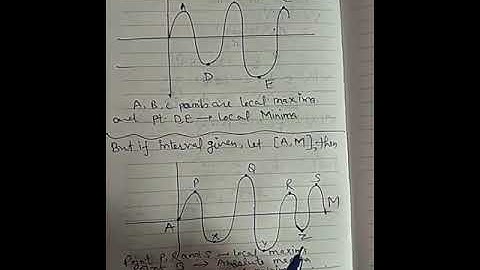 A
C
D
E
A, B, C points are local maxima
and pt D, E → Local Minima
But if interval given, let [A, M], then
P
Q
R
S
A
M
X
Y
Z
Point P, R and S → local maxima
Point Q → Absolute maxima